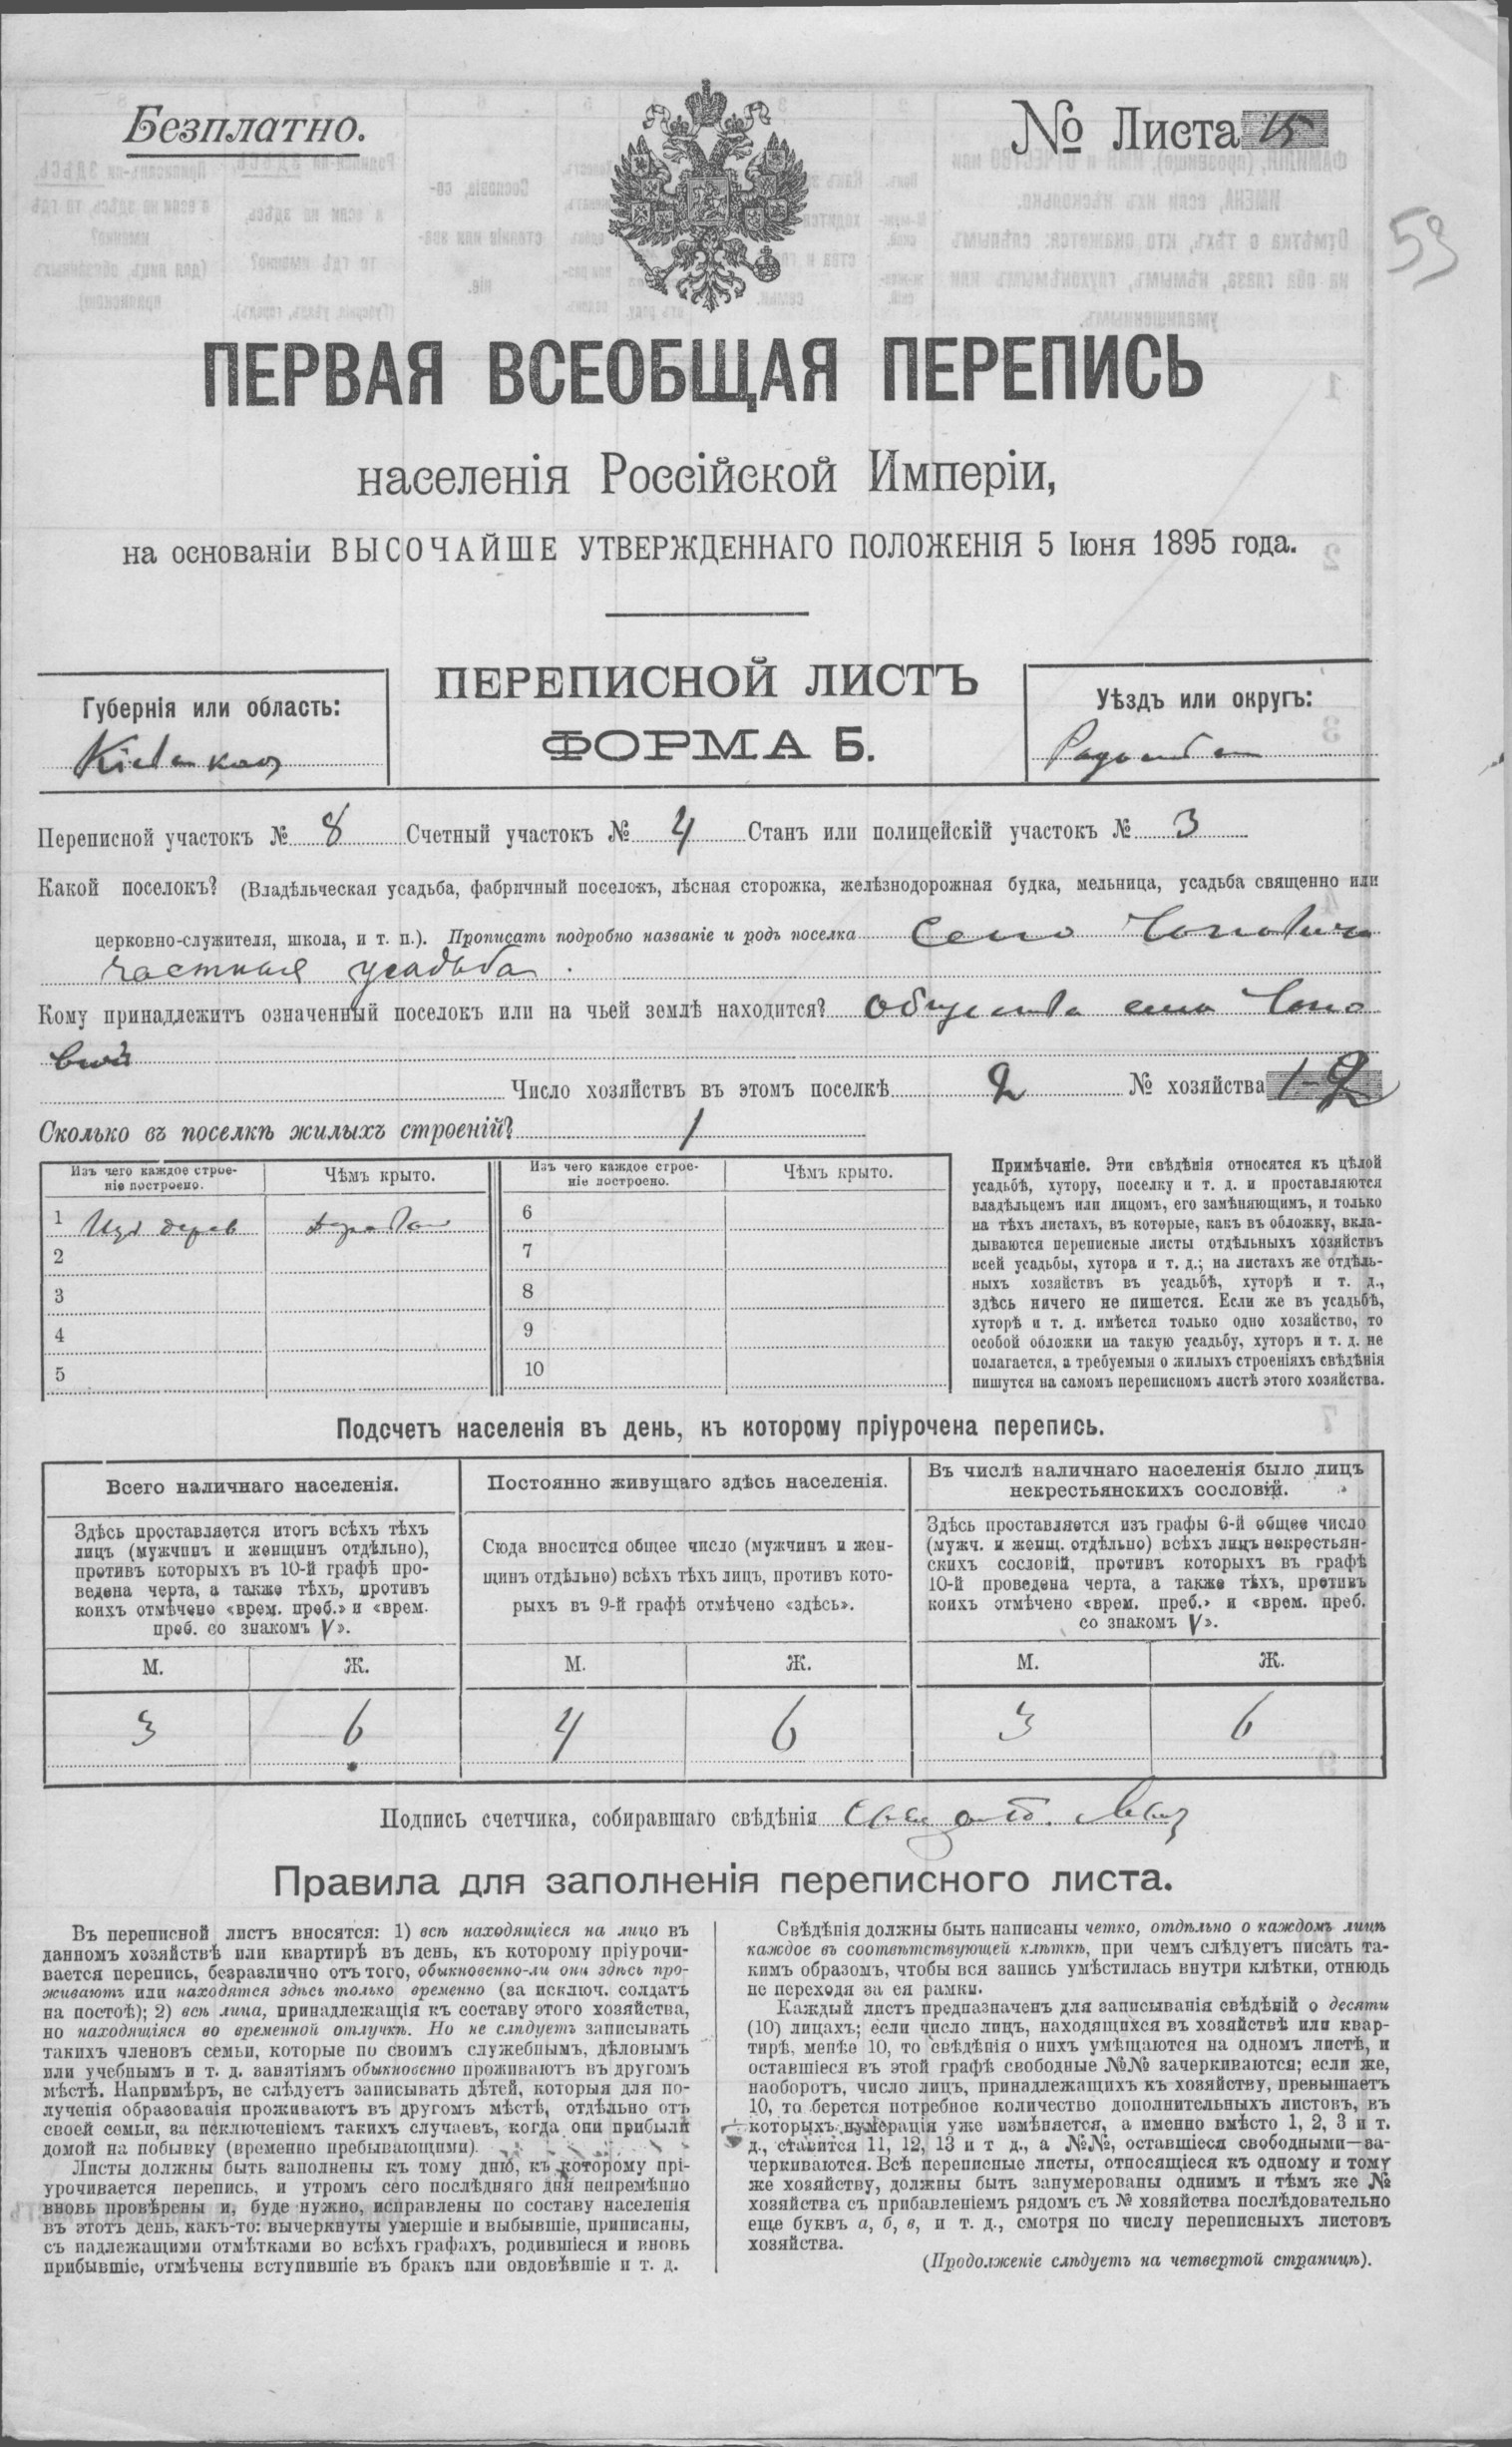 Безплатно.
№ Листа 15
53
ПЕРВАЯ ВСЕОБЩАЯ ПЕРЕПИСЬ
населенія Россійской Имперіи,
на основаніи ВЫСОЧАЙШЕ УТВЕРЖДЕННАГО ПОЛОЖЕНІЯ 5 Іюня 1895 года.
ПЕРЕПИСНОЙ ЛИСТЪ
ФОРМА Б.
Губернія или область:
Кіевская
Уѣздъ или округъ:
Переписной участокъ № 8 Счетный участокъ № 4 Станъ или полицейскій участокъ № 3
Какой поселокъ? (Владѣльческая усадьба, фабричный поселокъ, лѣсная сторожка, желѣзнодорожная будка, мельница, усадьба священно или
церковно-служителя, школа, и т. п.). Прописать подробно названіе и родъ поселка Село
частная усадьба
Кому принадлежитъ означенный поселокъ или на чьей землѣ находится? Общества села
Число хозяйствъ въ этомъ поселкѣ 2 № хозяйства 1-2
Сколько въ поселкѣ жилыхъ строеній? 1
Изъ чего каждое строе-
ніе построено.
Чѣмъ крыто.
Изъ чего каждое строе-
ніе построено.
Чѣмъ крыто.
1 Изъ дерев
2
3
4
5
6
7
8
9
10
Примѣчаніе. Эти свѣдѣнія относятся къ цѣлой
усадьбѣ, хутору, поселку и т. д. и проставляются
владѣльцемъ или лицомъ, его замѣняющимъ, и только
на тѣхъ листахъ, въ которые, какъ въ обложку, вкла-
дываются переписные листы отдѣльныхъ хозяйствъ
всей усадьбы, хутора и т. д.; на листахъ же отдѣль-
ныхъ хозяйствъ въ усадьбѣ, хуторѣ и т. д.,
здѣсь ничего не пишется. Если же въ усадьбѣ,
хуторѣ и т. д. имѣется только одно хозяйство, то
особой обложки на такую усадьбу, хуторъ и т. д. не
полагается, а требуемыя о жилыхъ строеніяхъ свѣдѣнія
пишутся на самомъ переписномъ листѣ этого хозяйства.
Подсчетъ населенія въ день, къ которому пріурочена перепись.
Всего наличнаго населенія.
Здѣсь проставляется итогъ всѣхъ тѣхъ
лицъ (мужчинъ и женщинъ отдѣльно),
противъ которыхъ въ 10-й графѣ про-
ведена черта, а также тѣхъ, противъ
коихъ отмѣчено «врем. преб.» и «врем.
преб. со знакомъ V».
Постоянно живущаго здѣсь населенія.
Сюда вносится общее число (мужчинъ и жен-
щинъ отдѣльно) всѣхъ тѣхъ лицъ, противъ кото-
рыхъ въ 9-й графѣ отмѣчено «здѣсь».
Въ числѣ наличнаго населенія было лицъ
некрестьянскихъ сословій.
Здѣсь проставляется изъ графы 6-й общее число
(мужч. и женщ. отдѣльно) всѣхъ лицъ некрестьян-
скихъ сословій, противъ которыхъ въ графѣ
10-й проведена черта, а также тѣхъ, противъ
коихъ отмѣчено «врем. преб.» и «врем. преб.
со знакомъ V».
М. Ж. М. Ж. М. Ж.
3 6 4 6 3 6
Подпись счетчика, собиравшаго свѣдѣнія
Правила для заполненія переписного листа.
Въ переписной листъ вносятся: 1) всѣ находящіеся на лицо въ
данномъ хозяйствѣ или квартирѣ въ день, къ которому пріурочи-
вается перепись, безразлично отъ того, обыкновенно-ли они здѣсь про-
живаютъ или находятся здѣсь только временно (за исключ. солдатъ
на постоѣ); 2) всѣ лица, принадлежащія къ составу этого хозяйства,
но находящіяся во временной отлучкѣ. Но не слѣдуетъ записывать
такихъ членовъ семьи, которые по своимъ служебнымъ, дѣловымъ
или учебнымъ и т. д. занятіямъ обыкновенно проживаютъ въ другомъ
мѣстѣ. Напримѣръ, не слѣдуетъ записывать дѣтей, которыя для по-
лученія образованія проживаютъ въ другомъ мѣстѣ, отдѣльно отъ
своей семьи, за исключеніемъ такихъ случаевъ, когда они прибыли
домой на побывку (временно пребывающими).
Листы должны быть заполнены къ тому дню, къ которому прі-
урочивается перепись, и утромъ сего послѣдняго дня непремѣнно
вновь провѣрены и, буде нужно, исправлены по составу населенія
въ этотъ день, какъ-то: вычеркнуты умершіе и выбывшіе, приписаны,
съ надлежащими отмѣтками во всѣхъ графахъ, родившіеся и вновь
прибывшіе, отмѣчены вступившіе въ бракъ или овдовѣвшіе и т. д.
Свѣдѣнія должны быть написаны четко, отдѣльно о каждомъ лицѣ
каждое въ соотвѣтствующей клѣткѣ, при чемъ слѣдуетъ писать та-
кимъ образомъ, чтобы вся запись умѣстилась внутри клѣтки, отнюдь
не переходя за ея рамки.
Каждый листъ предназначенъ для записыванія свѣдѣній о десяти
(10) лицахъ; если число лицъ, находящихся въ хозяйствѣ или квар-
тирѣ, менѣе 10, то свѣдѣнія о нихъ умѣщаются на одномъ листѣ, и
оставшіеся въ этой графѣ свободные №№ зачеркиваются; если же,
наоборотъ, число лицъ, принадлежащихъ къ хозяйству, превышаетъ
10, то берется потребное количество дополнительныхъ листовъ, въ
которыхъ нумерація уже измѣняется, а именно вмѣсто 1, 2, 3 и т.
д., ставится 11, 12, 13 и т д., а №№, оставшіеся свободными—за-
черкиваются. Всѣ переписные листы, относящіеся къ одному и тому
же хозяйству, должны быть занумерованы однимъ и тѣмъ же №
хозяйства съ прибавленіемъ рядомъ съ № хозяйства послѣдовательно
еще буквъ а, б, в, и т. д., смотря по числу переписныхъ листовъ
хозяйства.
(Продолженіе слѣдуетъ на четвертой страницѣ).